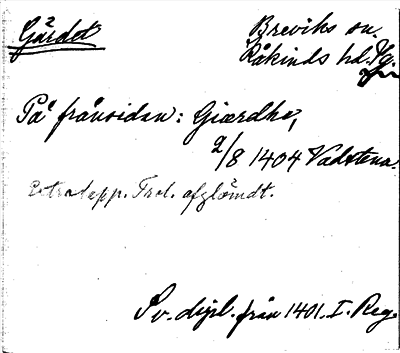 Gärdet
Breviks sn.
Kåkinds hd. Vg.
På frånsidan: Giærdhe,
2/8 1404 Vadstena.
Extradepp. Trol. afglömdt.
Sv. dipl. från 1401. I. Reg.